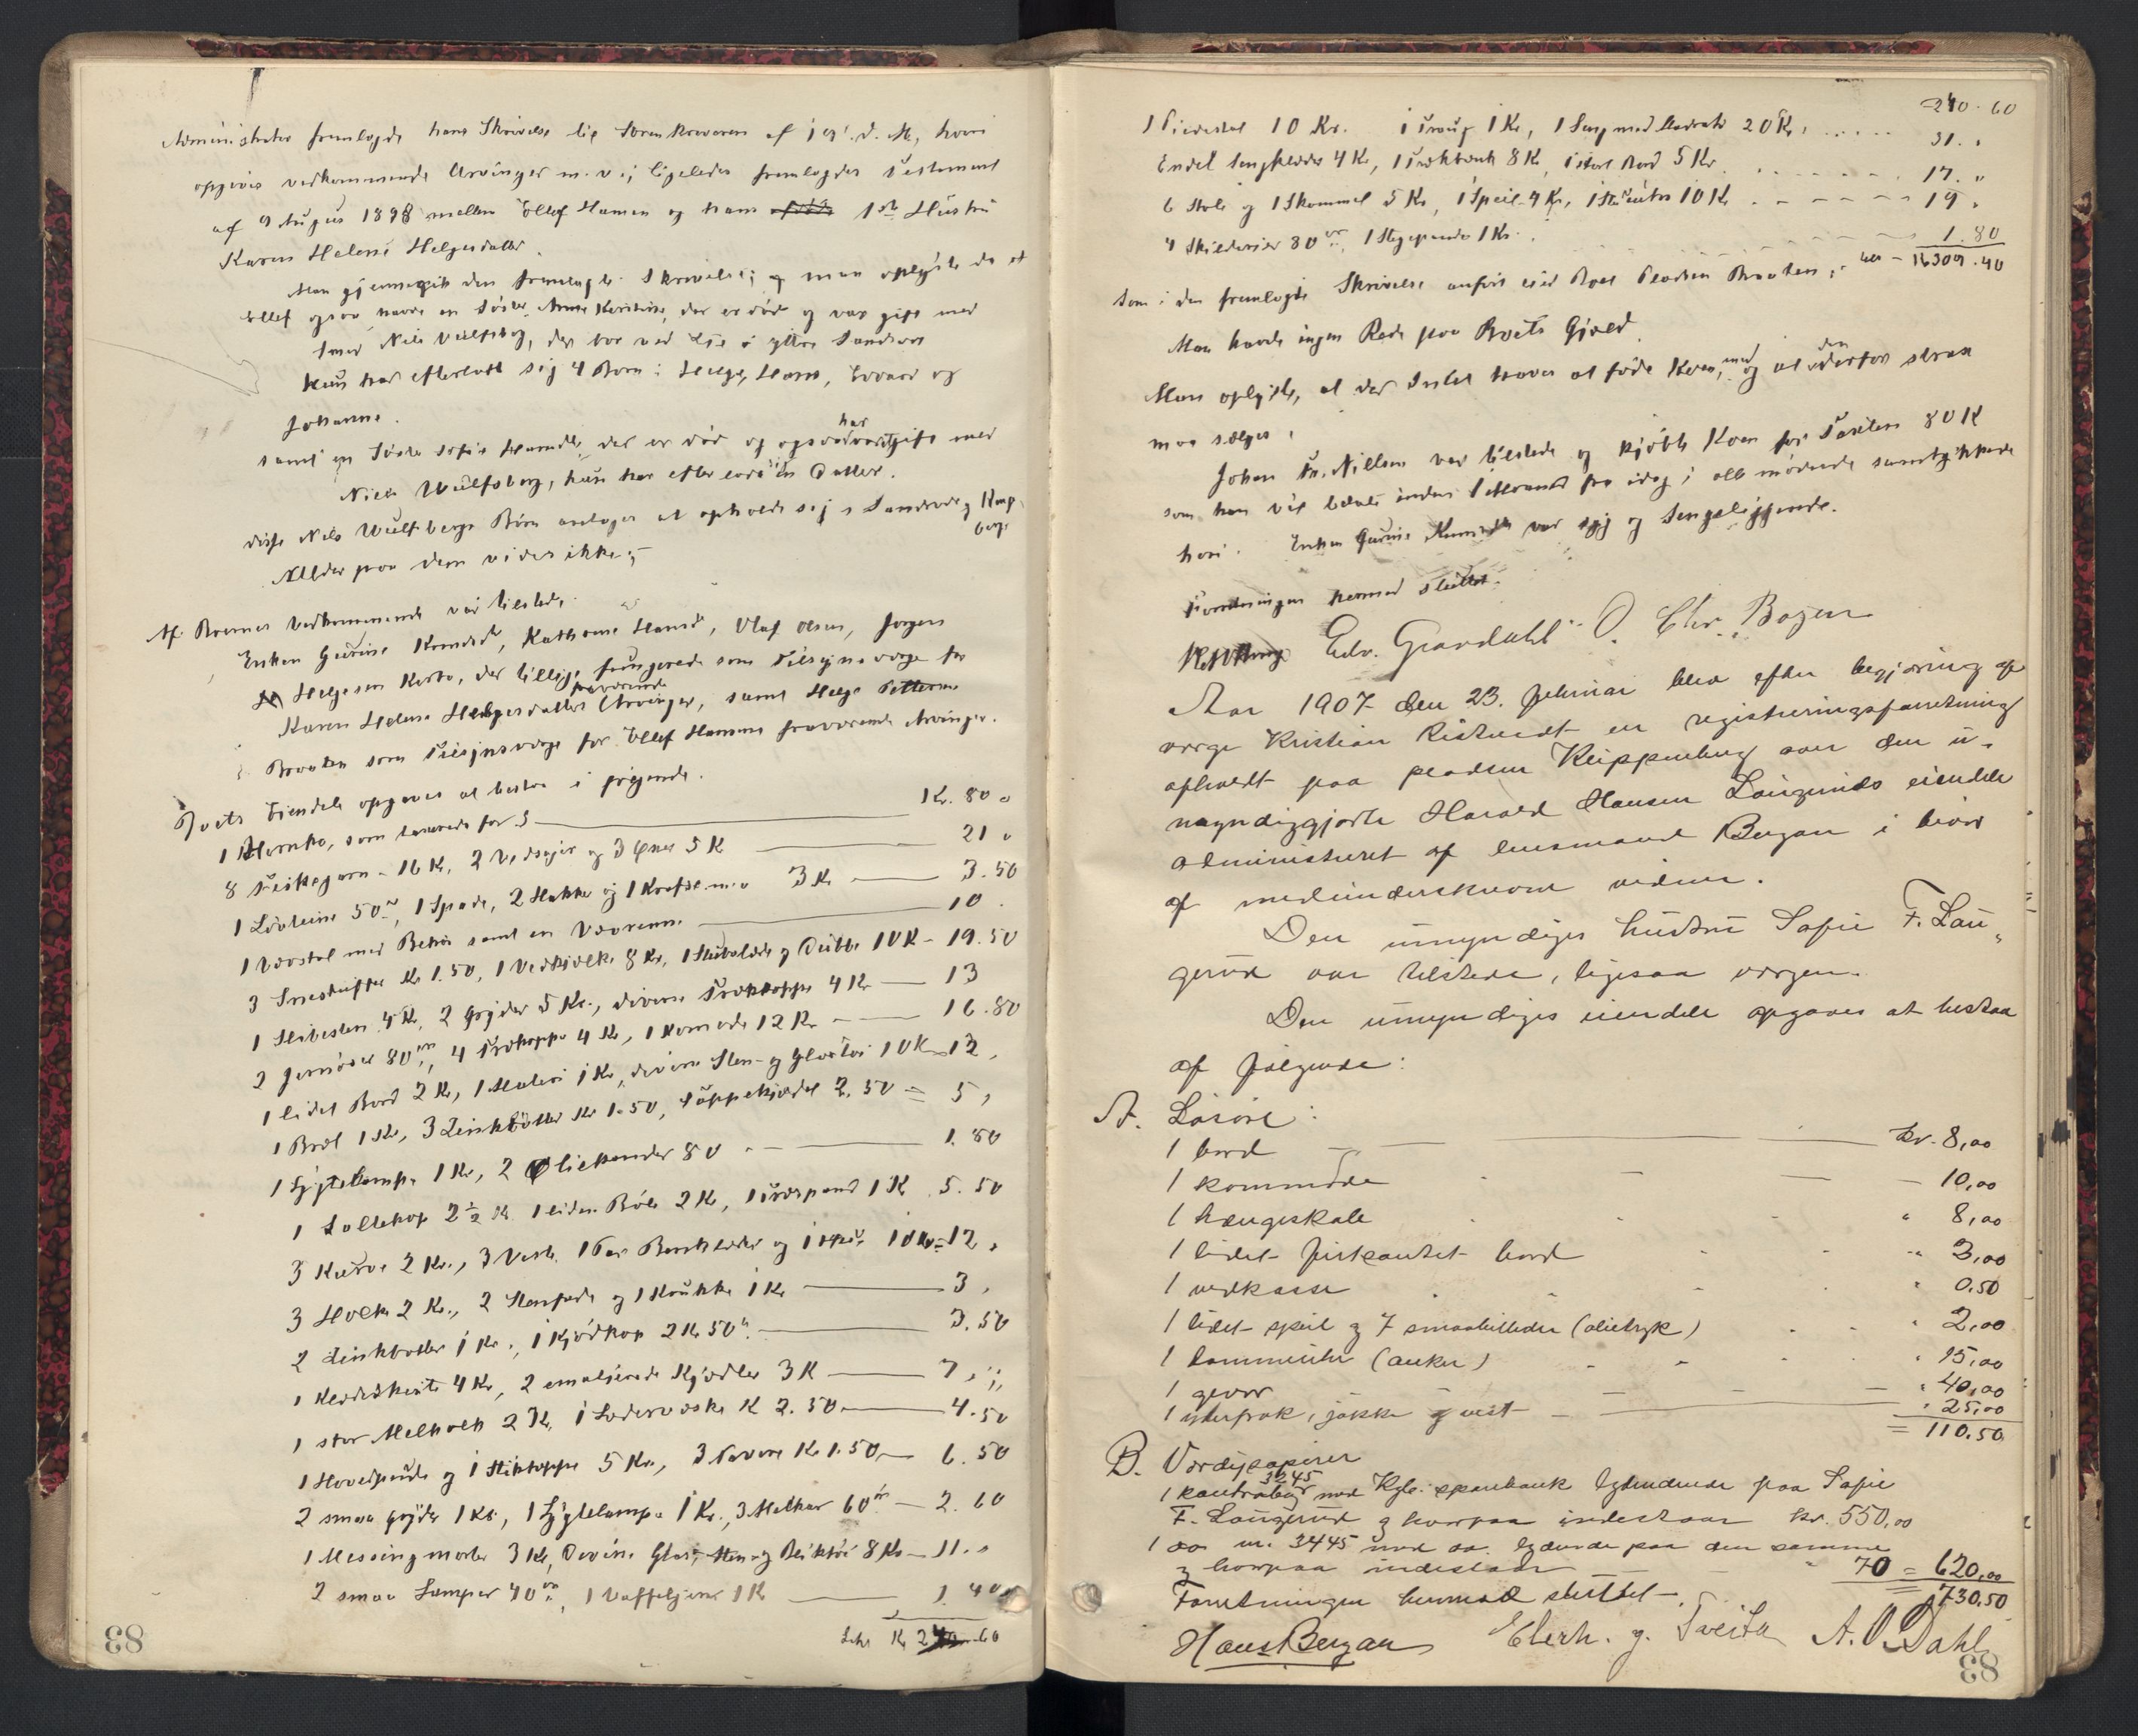 Administrator fremlagde hans Skrivelse til Sorenskriveren af 19' d. M, hvori
opgives vedkommende Arvinger m. v.; ligeledes fremlagdes Testament
af 9 August 1898 mellem Ellef Hansen og hans 1ste Hustru
Karen Helene Helgesdatter.
Man gjennemgik den fremlagte Skrivelse; og man oplyste da at
Ellef ogsaa havde en Søster, Anne Kirstine, der er død og var gift med
Smed Nils Wulfsberg, der bor ved i ytre Sandsvær
Hun har efterladt sig 4 Børn: Helge, Hans, Edvard og
Johanne.
samt en Søster Sofie Hansdtr, der er død og ogsaa har været gift med
Niels Wulfsberg, hun har efterladt en Datter.
disse Nils Wulfsbergs Børn antages at opholde sig i Sandsvær og Kongs
berg
Alder paa dem vides ikke;
Af Boernes Vedkommende var tilstede:
Enken Gurine Knudsd, Kathrine Hansd, Olaf Olsen, Jørgen
Helgesen Kirbo, der tillige fungerede som Tilsynsværge for
Karen Helene Helgesdatters fraværende Arvinger, samt Helge Pettersen
Braaten som Tilsynsværge for Ellef Hansens fraværende Arvinger.
Boets Eiendele opgaves at bestaa i følgende.
1 Mærnko, som taxeredes for S Kr. 80 "
8 Fiskegarn - 16 K, 2 Vedsager og 3 Øxer 5 K 21 "
1 Løvbeine 50 ør, 1 Spade, 2 Hakker og 1 Krafse m.v 3 K 3.50
1 Vævstol med Behør samt en Væverenne 10
3 Snesluffer K 1.50, 1 Vedkjælke 8 Kr, 1 Slibalade og Dubbe 10 K - 19.50
1 Slibesten 4 K, 2 Gryder 5 Kr., diverse Trækopper 4 K 13
2 Jernøser 80 ør, 4 Trækopper 4 K, 1 Komode 12 K 16.80
1 lidet Bord 2 K, 1 Stoleri 1 Kr, diverse Sten- og Glastøi 10 K 13,
1 Bræt 1 Kr, 3 Zinkbøtter Kr 1.50, Suppekjædel 2.50 = 5,
1 Lygtelampe 1 Kr, 2 Oliekander 80 1.80
1 Saltekop 2½ K 1 liden Bøle 2 K, 1 Træspand 1 K 5.50
3 Kurve 2 Kr., 3 Veste 1 Par Benklæder og 1 10 Kr = 12,
3 Holke 2 Kr., 2 Stenfade og 1 Krukke 1 K 3,
2 Zinkbøtter 1 Kr., 1 Kjødkop 2 K 50 3.50
1 Klædeskiste 4 Kr, 2 emaljerede Kjedler 3 K 7,
1 stor Melholk 2 K, 1 Lædervæske K 2.50 4.50
1 Hovedpude og 1 Stiktæppe 5 Kr., 3 Navere K 1.50 6.50
2 smaa Gryder 1 Kr., 1 Lygtelampe 1 K., 3 Melkar 60 ør 2.60
1 Messingmorter 3 Kr, Divirse Glas-, Sten og Bliktøi 8 Kr 11.
2 smaa Lamper 40 ør, 1 Vaffeljern 1 K 1.40
Lat K 240.60
83
240.60
1 Piedestal 10 Kr. 1 Traug 1 Kr, 1 Seng med Madrats 20 Kr. 31.
Endel Sengklæder 4 Kr, 1 Trækbænk 8 K, 1 stort Bord 5 Kr 17. "
6 Stole og 1 Skammel 5 Kr, 1 Speil 4 Kr, 1 Stueuhr 10 K 19.
4 Skilderier 80 ør, 1 Stegepande 1 Kr. 1.80
16309.40
som i den fremlagte Skrivelse anført eier Boet Pladsen Braaten;
Man havde ingen Rede paa Boets Gjæld.
Man oplyste, at der Intet haves at føde Koen med, og at den derfor strax
maa sælges.
Johan Fr. Nilsen var tilstede og kjøbte Koen for Taxten 80 K
som han vil betale inden 1 Maaned fra idag; alle mødende samtykkede
heri. Enken Gurine Knudsdtr var syg og sengeliggende.
Forretningen hermed sluttet.
Edv. Grandahl O. Chr. Bogen
Aar 1907 den 23. februar blev efter begjæring af
værge Kristian Kistvedt en registreringsforretning
afholdt paa pladsen Klippenberg over den u-
myndiggjorte Harald Hansen Laugeruds eiendele
administreret af lensmand Bergan i bivær
af medunderskrevne vidner.
Den umyndiges hustru Sofie F. Lau-
gerud var tilstede, ligesaa værgen.
Den umyndiges eiendele opgaves at bestaa
af følgende:
A. Løsøre:
1 bord kr. 8,00
1 kommode 10,00
1 hængeskab " 8,00
1 lidet firkantet bord " 2,00
1 vedkasse " 0.50
1 lidet speil og 7 smaabilleder (olietryk) " 2,00
1 lommeuhr (anker) " 15,00
1 gevær " 40,00
1 ytterfrak, jakke og vest " 25,00
= 110.50
B. Værdipapirer
1 kontrabog 3245 med Kgb. sparebank lydende paa Sofie
F. Laugerud og hvorpaa indestaar kr. 550,00
1 do nr. 3445 med do. lydende paa den samme
og hvorpaa indestaar " 70 = 620,00
730,50
Forretningen hermed sluttet.
Hans Bergan Eberh. g. Tveita A. O. Dahl
83